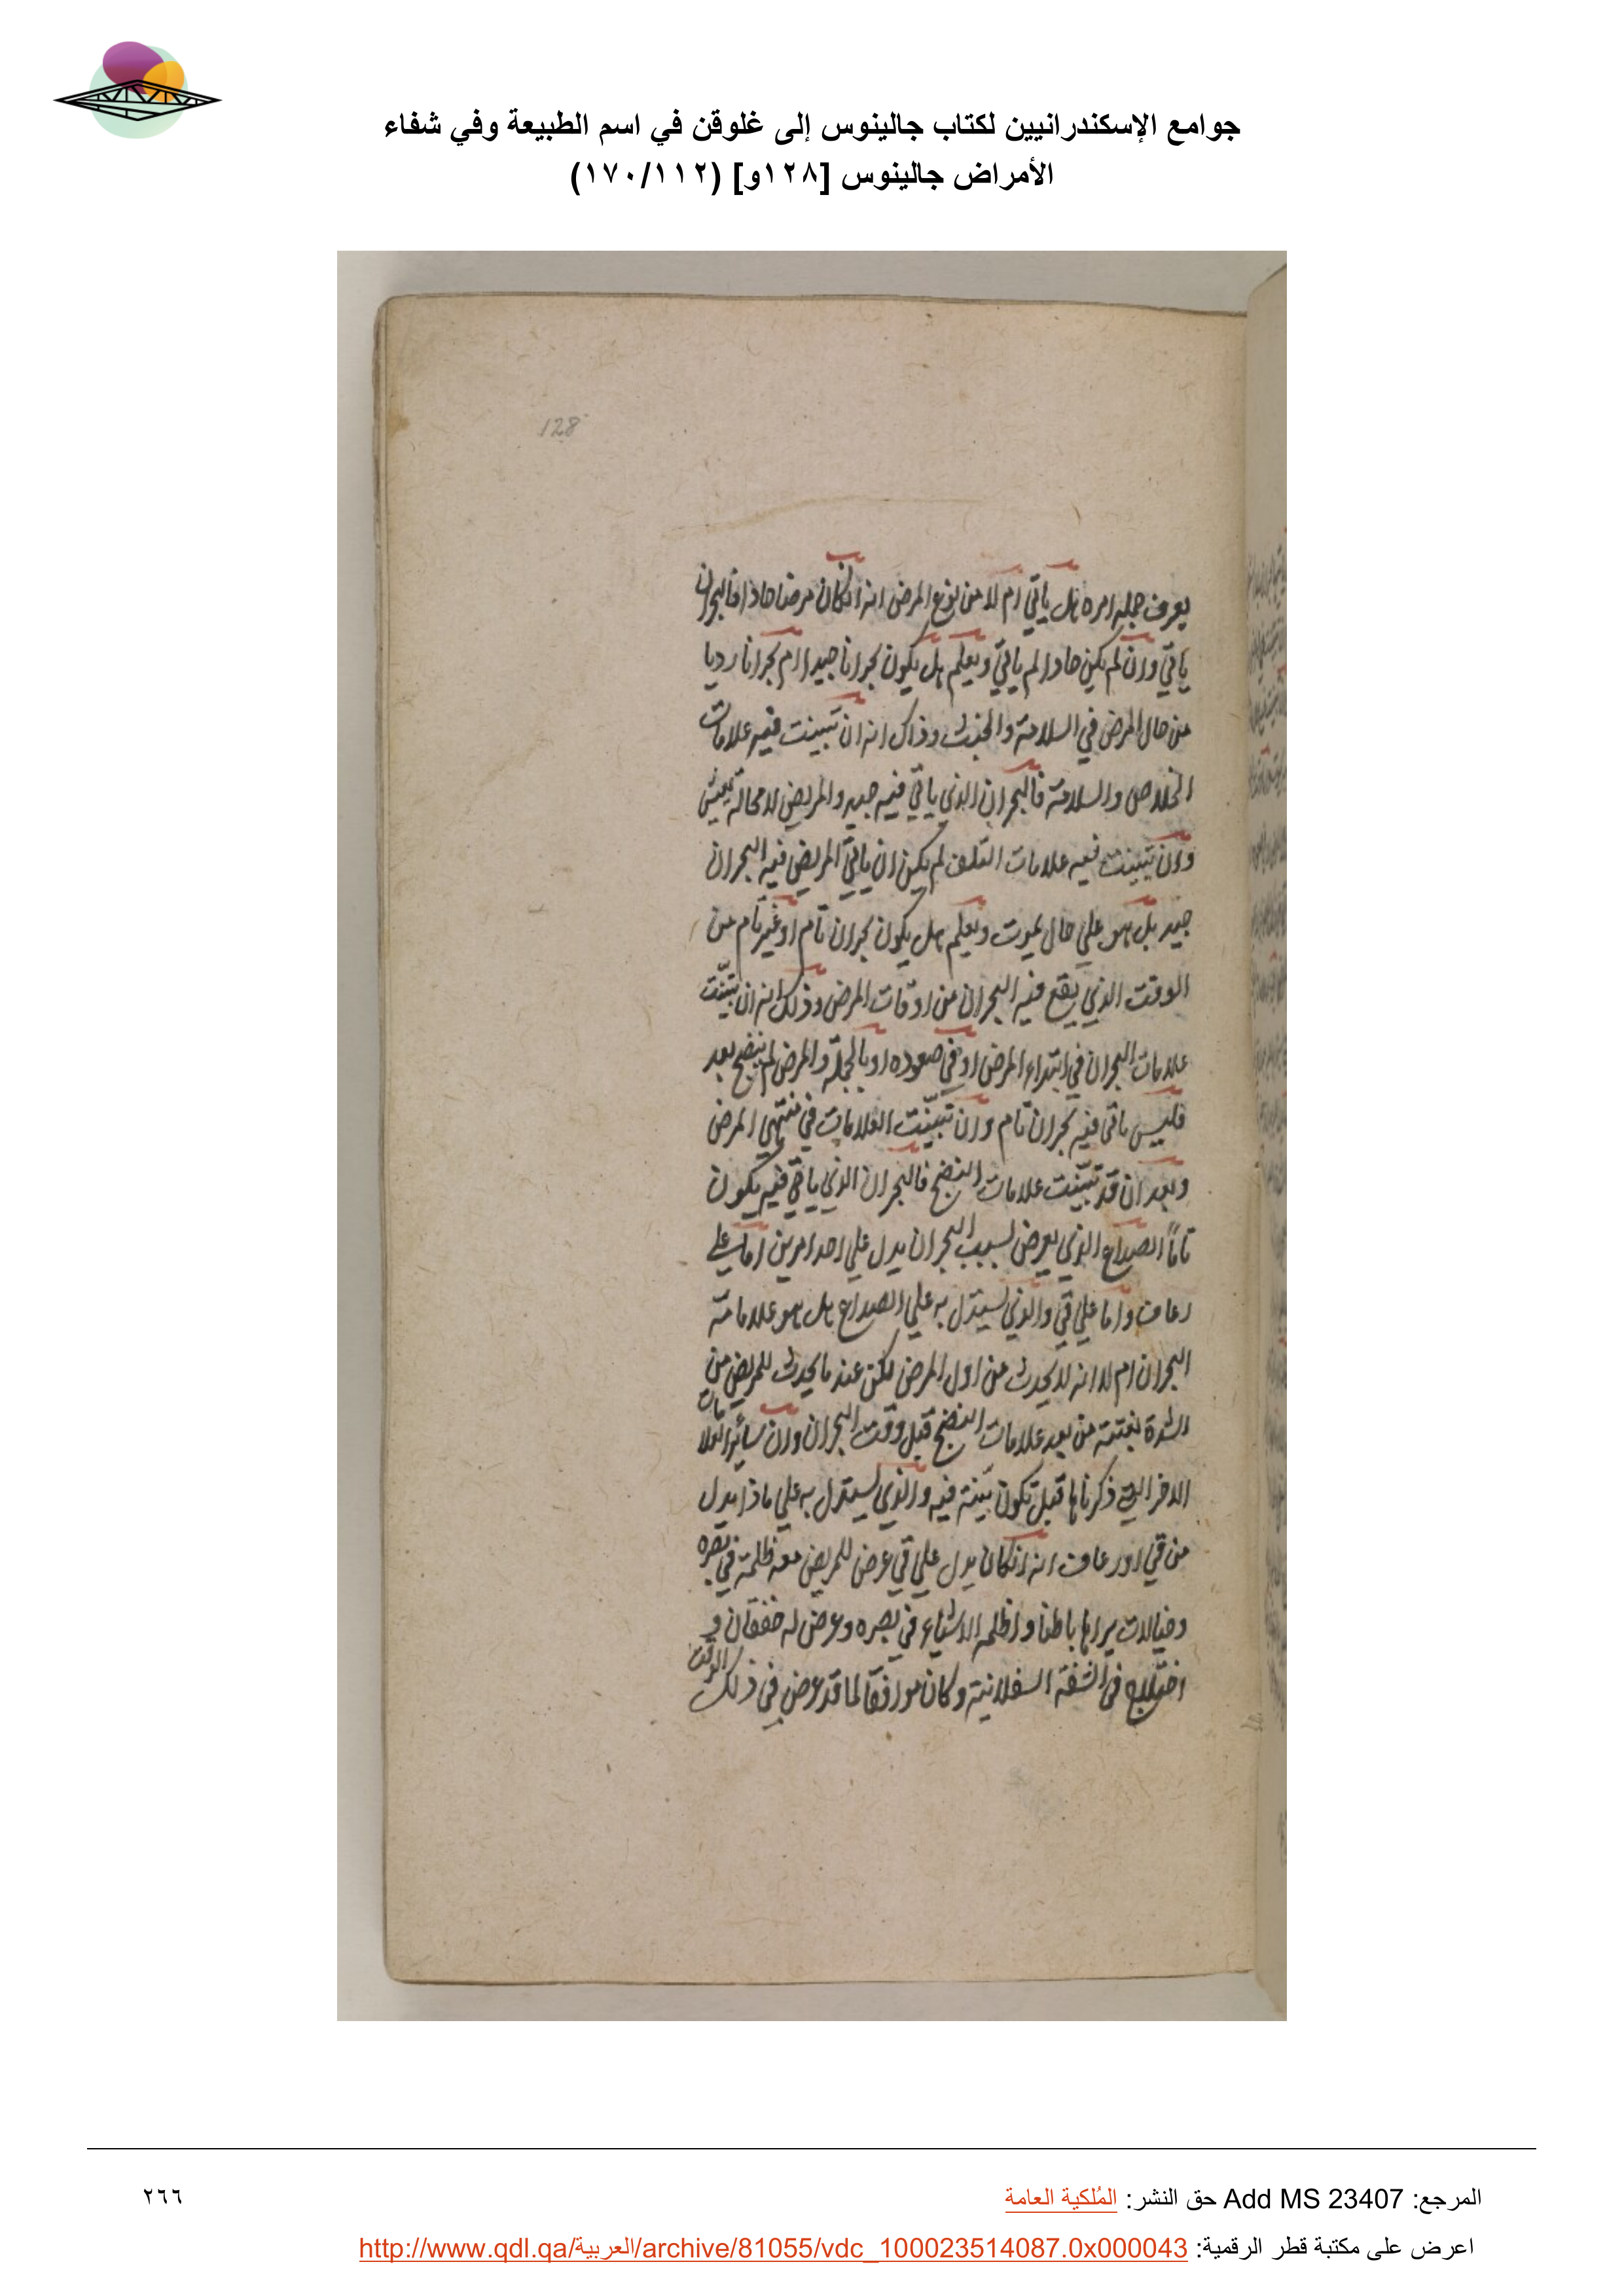 جوامع الإسكندرانيين لكتاب جالينوس إلى غلوقن في اسم الطبيعة وفي شفاء
الأمراض جالينوس [١٢٨و] (١٧٠/١١٢)
128
يعرف جملة امره هل ياتي ام لا من نوع المرض انه انكان مرضا حادا فالبحران
ياتي وان لم يكن حادا لم ياتي ويعلم هل يكون بحرانا جيدا ام بحرانا رديا
من حال المرض في السلامة والخبث وذاك انه ان تبينت فيه علامات
الخلاص والسلامة فالبحران الذي ياتي فيه جيد والمريض لا محالة يعيش
وان تبينت فيه علامات التلف لم يكن ان ياتي المريض فيه البحران
جيد بل هو علي حال يموت ويعلم هل يكون بحران تام او غير تام من
الوقت الذي يقع فيه البحران من اوقات المرض وذلك انه ان تبينت
علامات البحران في ابتداء المرض او في صعوده او بالجملة والمرض لم ينضج بعد
فليس ياتي فيه بحران تام وان تبينت العلامات في منتهي المرض
وبعد ان قد تبينت علامات النضج فالبحران الذي ياتي فيه يكون
تاماً الصداع الذي يعرض لسبب البحران يدل علي احد امرين اما علي
رعاف واما علي قي والذي يستدل به علي الصداع هل هو علامة
البحران ام لا انه لا يحدث من اول المرض لكن عند ما يحدث للمريض من
الشدة بغتة من بعد علامات النضج قبل وقت البحران وان سائر العلامات
الاخر التي ذكرناها قبل تكون بينة فيه والذي يستدل به علي ماذا يدل
من قي او رعاف انه انكان يدل علي قي عرض للمريض معه ظلمة في بصره
وخيالات يراها باطنا واظلمه الاشياء في بصره وعرض له خفقان و
اختلاج في الشفة السفلانية وكان موافقا لما قد عرض في ذلك الوقت
المرجع: Add MS 23407 حق النشر: المُلكية العامة
٢٦٦
اعرض على مكتبة قطر الرقمية: http://www.qdl.qa/العربية/archive/81055/vdc_100023514087.0x000043